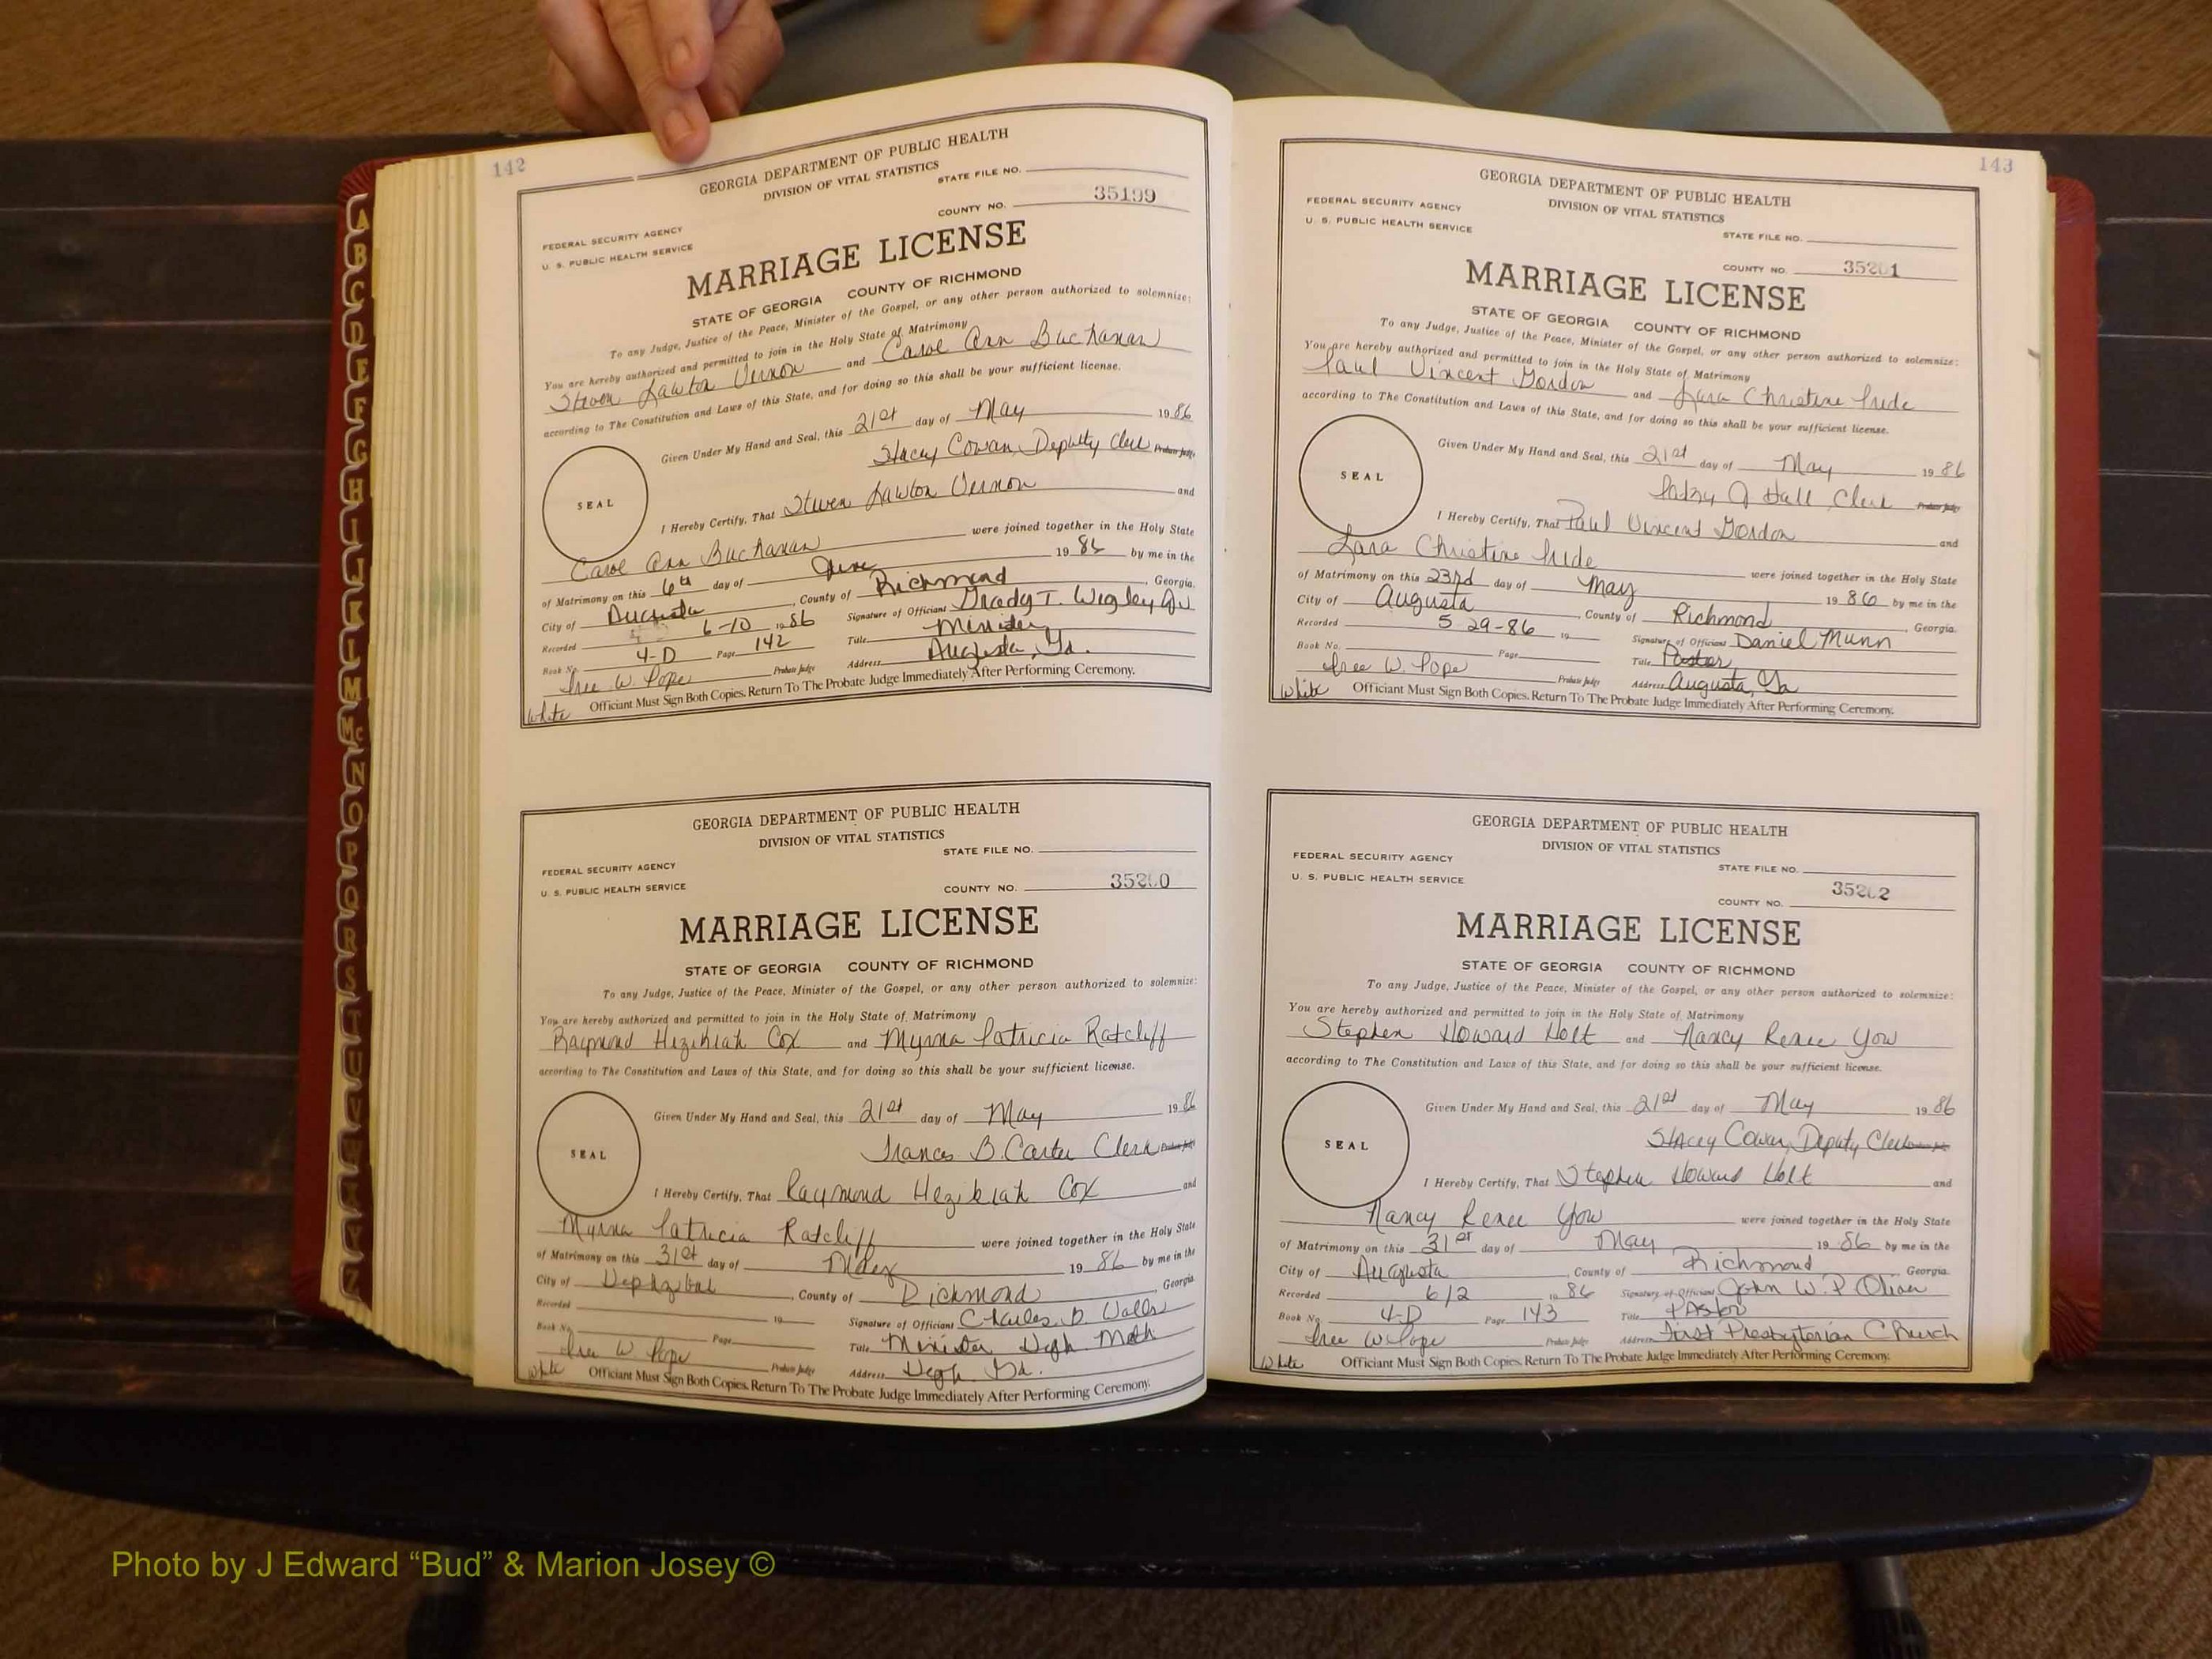 142
GEORGIA DEPARTMENT OF PUBLIC HEALTH
DIVISION OF VITAL STATISTICS
STATE FILE NO.
FEDERAL SECURITY AGENCY
U. S. PUBLIC HEALTH SERVICE
COUNTY NO. 35199
MARRIAGE LICENSE
STATE OF GEORGIA COUNTY OF RICHMOND
To any Judge, Justice of the Peace, Minister of the Gospel, or any other person authorized to solemnize:
You are hereby authorized and permitted to join in the Holy State of Matrimony
Steven Lawton Vernon and Carol Ann Buchanan
according to The Constitution and Laws of this State, and for doing so this shall be your sufficient license.
Given Under My Hand and Seal, this 21st day of May 1986
SEAL
Stacey Cowan, Deputy Clerk Probate Judge
I Hereby Certify, That Steven Lawton Vernon and
Carol Ann Buchanan were joined together in the Holy State
of Matrimony on this 6th day of June 1986 by me in the
City of Augusta, County of Richmond, Georgia.
Recorded 6-10 1986 Signature of Officiant Grady T. Wigley Jr
Book No. 4-D Page 142 Title Minister
Probate Judge Address Augusta, Ga.
White Officiant Must Sign Both Copies. Return To The Probate Judge Immediately After Performing Ceremony.
GEORGIA DEPARTMENT OF PUBLIC HEALTH
DIVISION OF VITAL STATISTICS
STATE FILE NO.
FEDERAL SECURITY AGENCY
U. S. PUBLIC HEALTH SERVICE
COUNTY NO. 35200
MARRIAGE LICENSE
STATE OF GEORGIA COUNTY OF RICHMOND
To any Judge, Justice of the Peace, Minister of the Gospel, or any other person authorized to solemnize:
You are hereby authorized and permitted to join in the Holy State of Matrimony
Raymond Hezikiah Cox and Myrna Patricia Ratcliff
according to The Constitution and Laws of this State, and for doing so this shall be your sufficient license.
Given Under My Hand and Seal, this 21st day of May 1986
SEAL
Frances B. Carter Clerk Probate Judge
I Hereby Certify, That Raymond Hezikiah Cox and
Myrna Patricia Ratcliff were joined together in the Holy State
of Matrimony on this 31st day of May 1986 by me in the
City of Hephzibah, County of Richmond Georgia
Recorded 19 Signature of Officiant Charles D Walls
Book No. Page Title Minister Heph. Meth
W Pope Probate Judge Address Heph. Ga.
White Officiant Must Sign Both Copies. Return To The Probate Judge Immediately After Performing Ceremony.
143
GEORGIA DEPARTMENT OF PUBLIC HEALTH
DIVISION OF VITAL STATISTICS
FEDERAL SECURITY AGENCY
U. S. PUBLIC HEALTH SERVICE
STATE FILE NO.
COUNTY NO. 35201
MARRIAGE LICENSE
STATE OF GEORGIA COUNTY OF RICHMOND
To any Judge, Justice of the Peace, Minister of the Gospel, or any other person authorized to solemnize:
You are hereby authorized and permitted to join in the Holy State of Matrimony
Paul Vincent Gordon and Lara Christine Pride
according to The Constitution and Laws of this State, and for doing so this shall be your sufficient license.
Given Under My Hand and Seal, this 21st day of May 1986
SEAL
Patsy J Hall, Clerk Probate Judge
I Hereby Certify, That Paul Vincent Gordon and
Lara Christine Pride were joined together in the Holy State
of Matrimony on this 23rd day of May 1986 by me in the
City of Augusta, County of Richmond, Georgia.
Recorded 5-29-86 19 Signature of Officiant Daniel Munn
Book No. Page Title Pastor
W. Pope Probate Judge Address Augusta, Ga
White Officiant Must Sign Both Copies. Return To The Probate Judge Immediately After Performing Ceremony.
GEORGIA DEPARTMENT OF PUBLIC HEALTH
DIVISION OF VITAL STATISTICS
FEDERAL SECURITY AGENCY
U. S. PUBLIC HEALTH SERVICE
STATE FILE NO.
COUNTY NO. 35202
MARRIAGE LICENSE
STATE OF GEORGIA COUNTY OF RICHMOND
To any Judge, Justice of the Peace, Minister of the Gospel, or any other person authorized to solemnize:
You are hereby authorized and permitted to join in the Holy State of Matrimony
Stephen Howard Holt and Nancy Renee You
according to The Constitution and Laws of this State, and for doing so this shall be your sufficient license.
Given Under My Hand and Seal, this 21st day of May 1986
SEAL
Stacey Cowan, Deputy Clerk
I Hereby Certify, That Stephen Howard Holt and
Nancy Renee You were joined together in the Holy State
of Matrimony on this 31st day of May 1986 by me in the
City of Augusta, County of Richmond, Georgia.
Recorded 6/2 1986 Signature of Officiant John W. P Oliver
Book No. 4-D Page 143 Title Pastor
W Pope Probate Judge Address First Presbyterian Church
White Officiant Must Sign Both Copies. Return To The Probate Judge Immediately After Performing Ceremony.
A
B
C
D
E
F
G
H
I
J
K
L
M
Mc
N
O
P
Q
R
S
T
U
V
W
X
Y
Z
Photo by J Edward “Bud” & Marion Josey ©